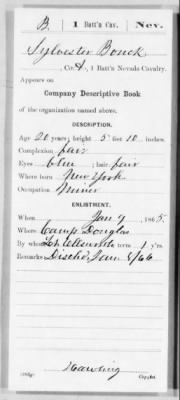 B. 1 Batt'n Cav. Nev.
Sylvester Bouck
, Co. A, 1 Batt'n Nevada Cavalry.
Appears on
Company Descriptive Book
of the organization named above.
DESCRIPTION.
Age 21 years; height 5 feet 10 inches.
Complexion fair
Eyes blue; hair fair
Where born New York
Occupation Miner
ENLISTMENT.
When Jan 9, 1865
Where Camp Douglas
By whom Lt. Ellsworth term 1 y'rs.
Remarks Disch'd Jan 8/66
Hawling
Copyist.